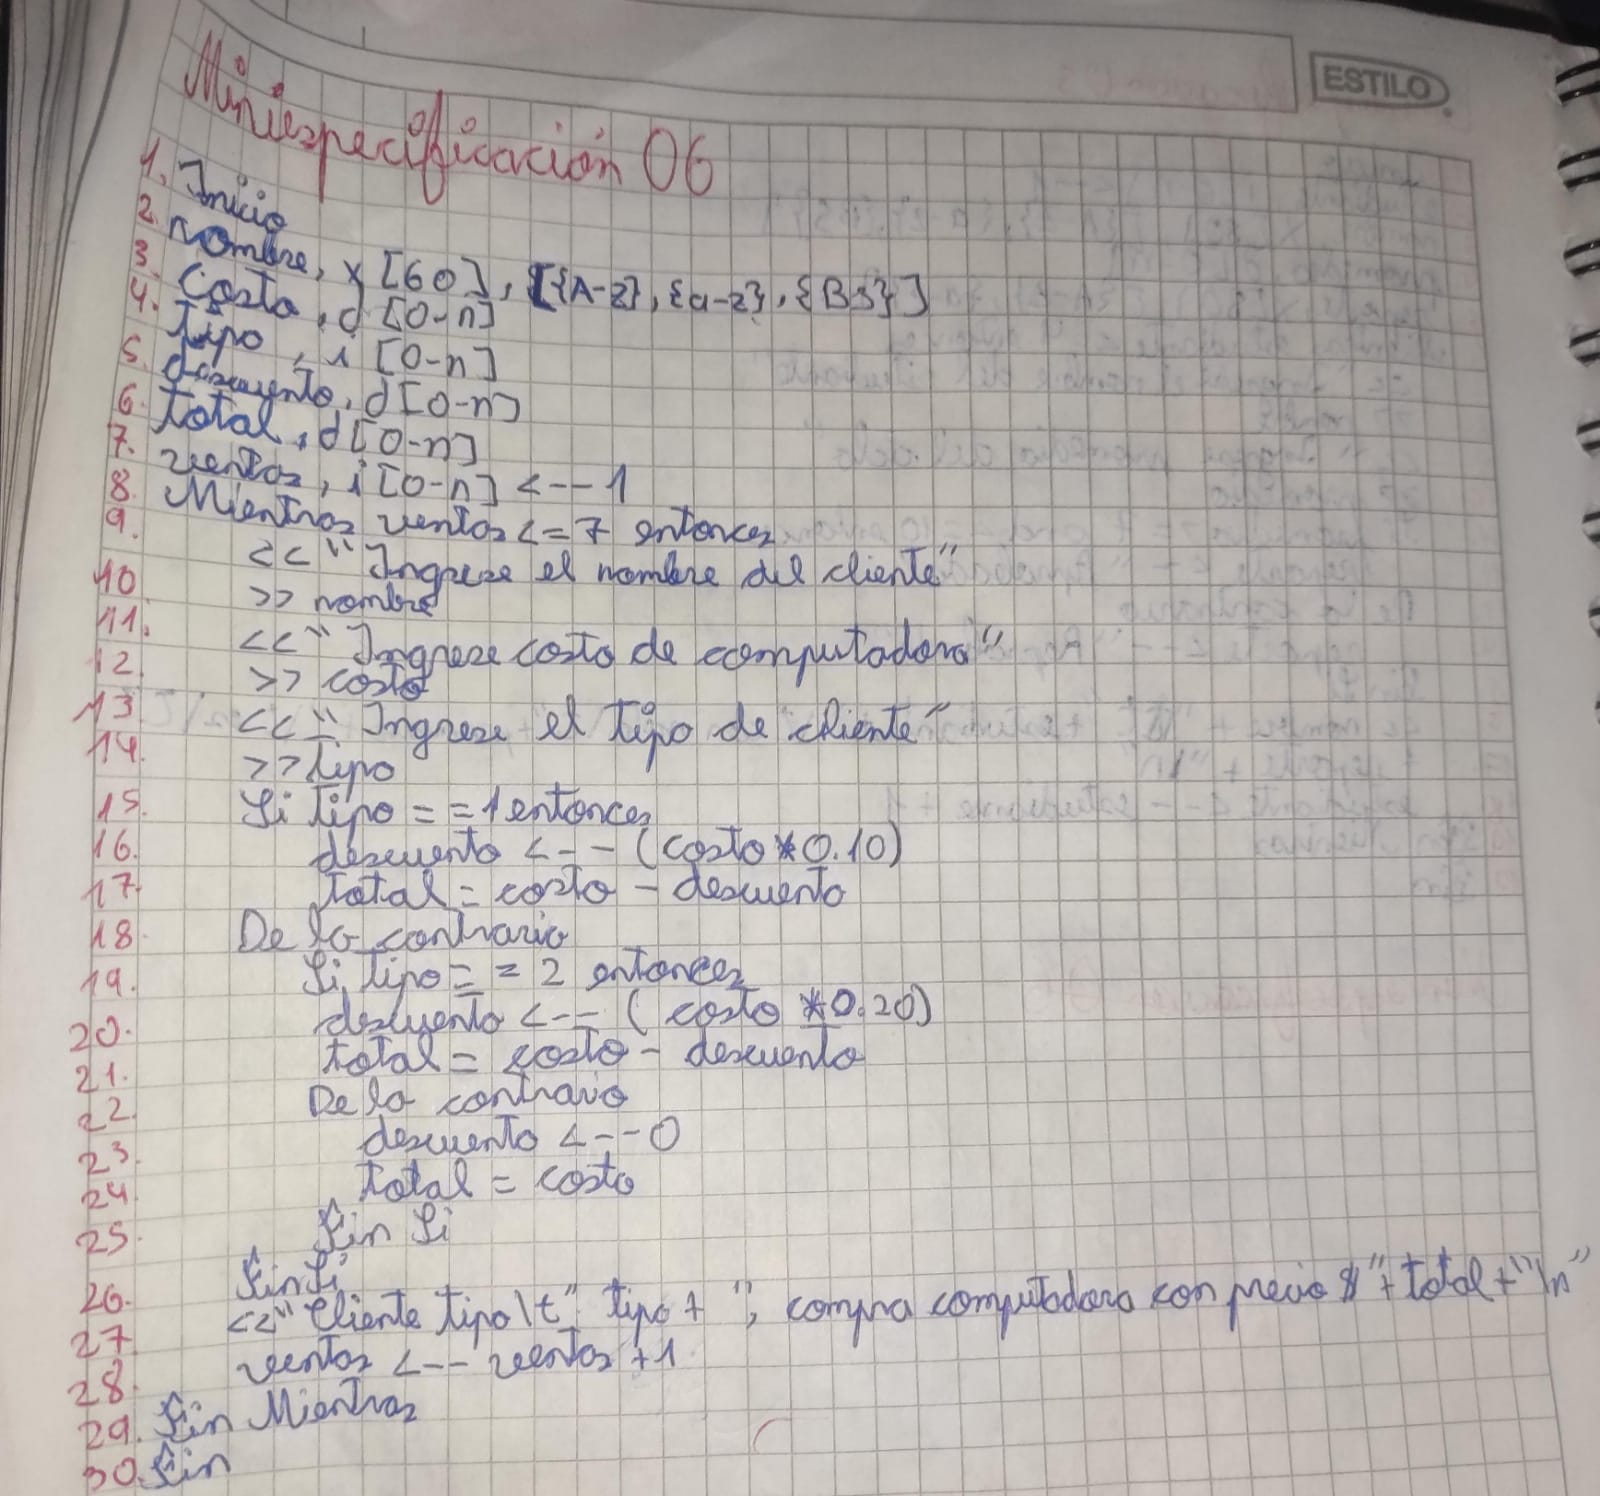 ESTILO
Miniespecificación 06
1. Inicio
2. nombre, x [60], [{A-Z}, {a-z}, {BS}]
3. Costo, d [0-n]
4. tipo, i [0-n]
5. descuento, d [0-n]
6. total, d [0-n]
7. ventas, i [0-n] <-- 1
8. Mientras ventas <= 7 entonces
9. << "Ingrese el nombre del cliente"
10 >> nombre
11. << "Ingrese costo de computadora"
12 >> costo
13 << "Ingrese el tipo de cliente"
14. >> tipo
15. Si tipo == 1 entonces
16. descuento <-- (costo * 0.10)
17. total = costo - descuento
18. De lo contrario
19. Si tipo == 2 entonces
20. descuento <-- (costo * 0.20)
21. total = costo - descuento
22. De lo contrario
23. descuento <-- 0
24 total = costo
25. Fin Si
26. Fin Si
27 << "Cliente tipo \t" tipo + ", compra computadora con precio $" + total + "\n"
28. ventas <-- ventas + 1
29. Fin Mientras
30. Fin